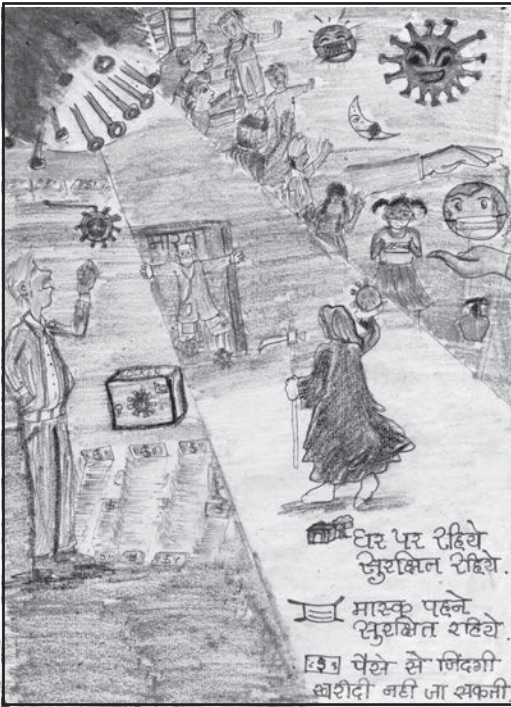 भारत
घर पर रहिये
सुरक्षित रहिये.
मास्क पहने
सुरक्षित रहिये.
पैसे से जिंदगी
खरीदी नही जा सकती